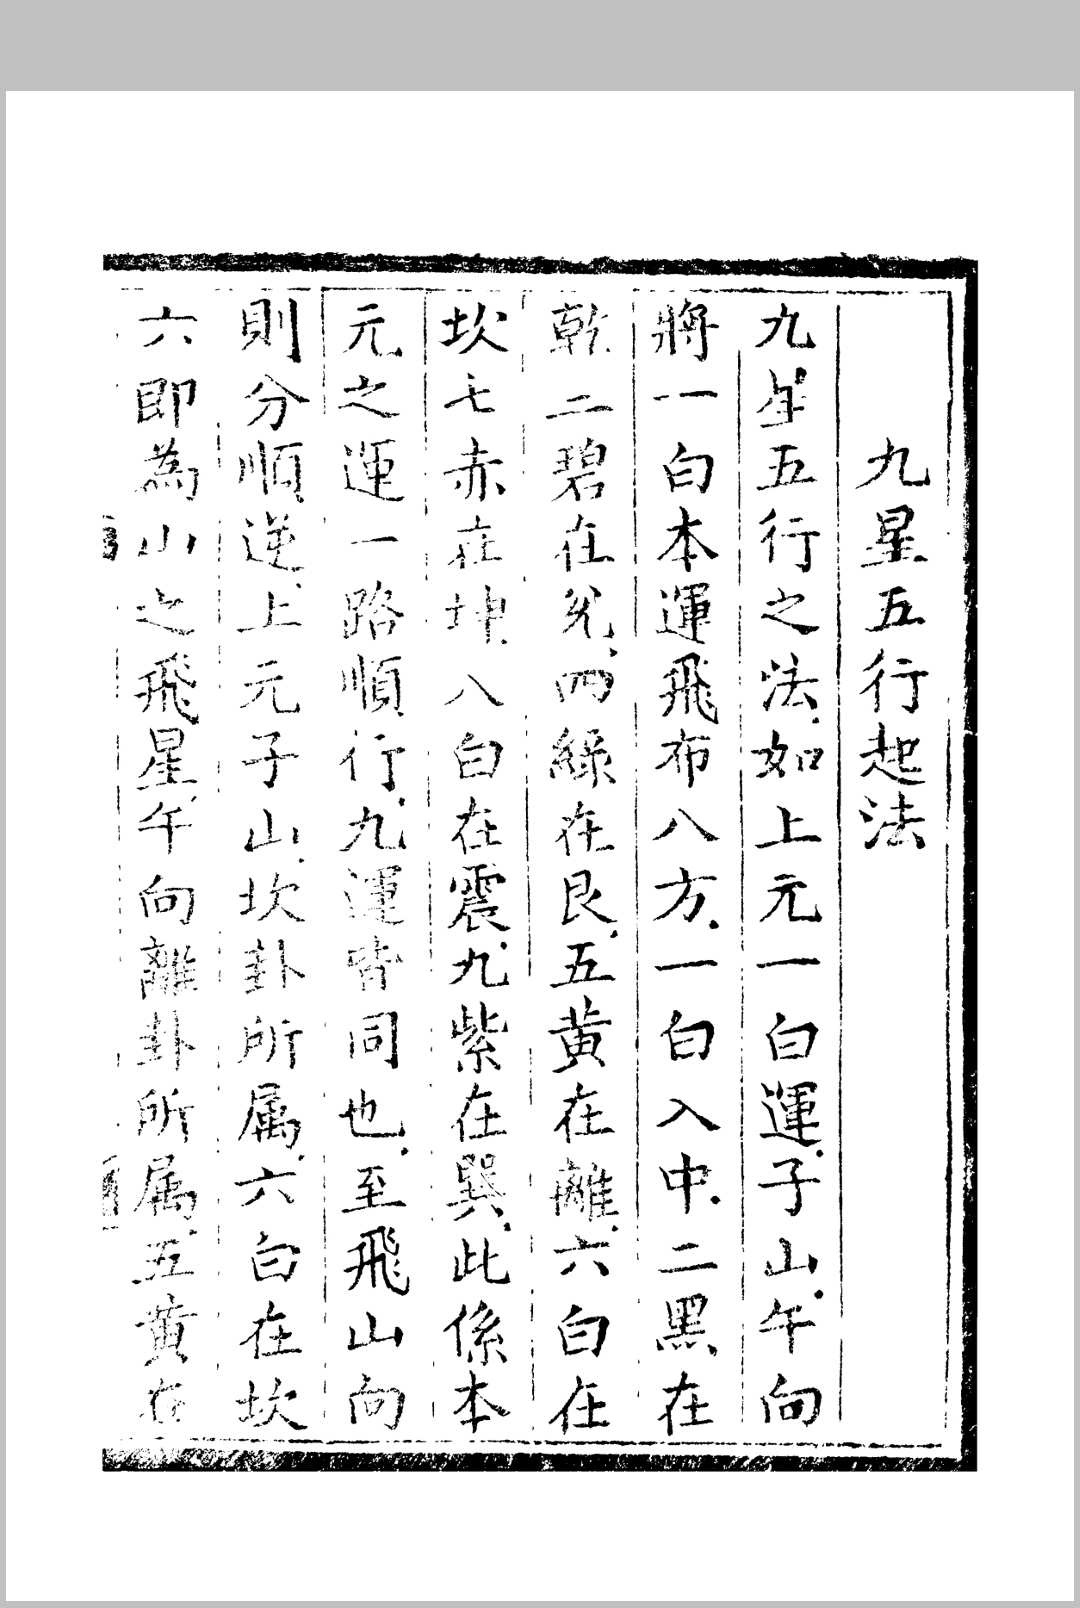 九星五行起法
九星五行之法如上元一白運子山午向
將一白本運飛布八方一白入中二黑在
乾二碧在兊四綠在艮五黄在離六白在
坎七赤在坤八白在震九紫在巽此係本
元之運一路順行九運皆同也至飛山向
則分順逆上元子山坎卦所属六白在坎
六即為山之飛星午向離卦所属五黄在